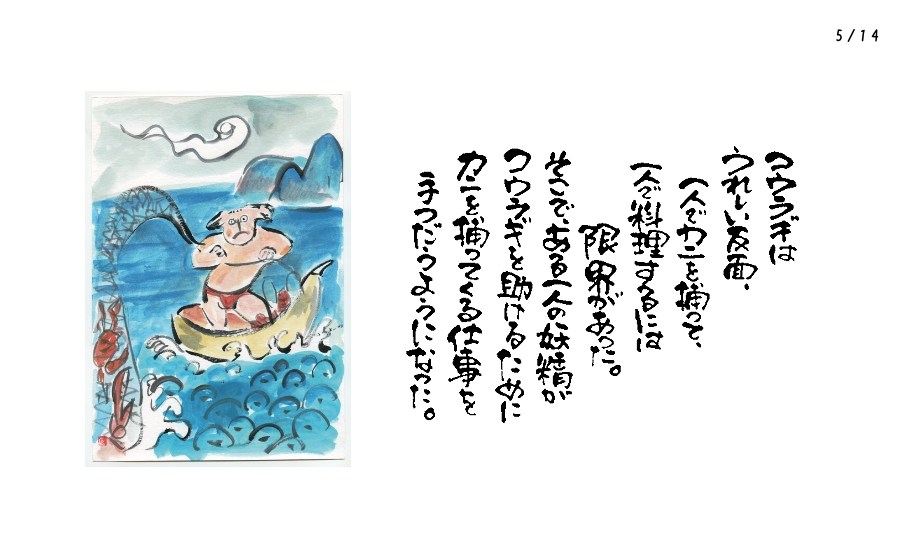 5/14
コウラギは
うれしい反面、
一人でカニを捕って、
一人で料理するには
限界があった。
そこで、ある一人の妖精が
コウラギを助けるために
カニを捕ってくる仕事を
手つだうようになった。